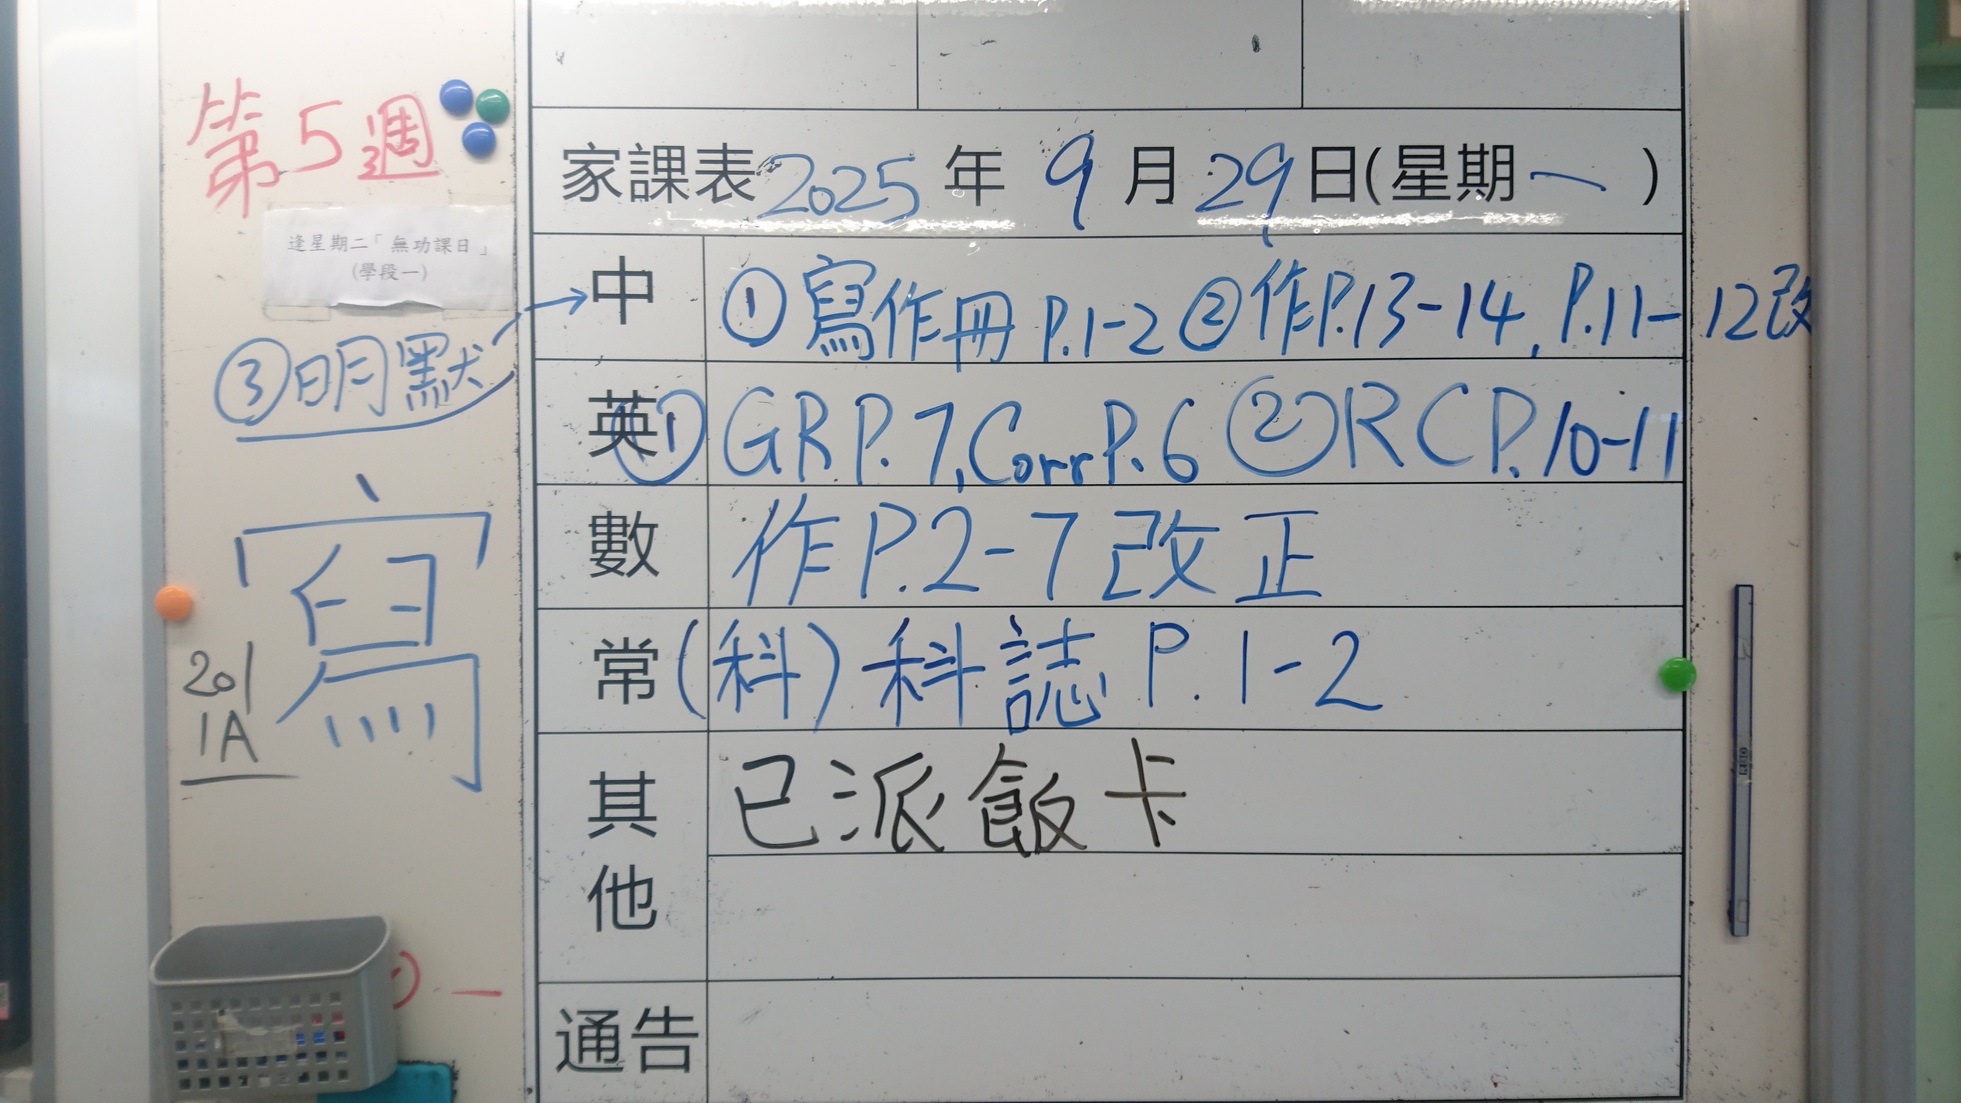 第5週
逢星期二「無功課日」
(學段一)
③明默
寫
201
1A
家課表2025年9月29日(星期一)
中 ①寫作冊P.1-2②作P.13-14, P.11-12改
英 ①GRP.7, Corr P.6 ②RCP.10-11
數 作P.2-7改正
常 (科)科誌P.1-2
其他 已派飯卡
通告